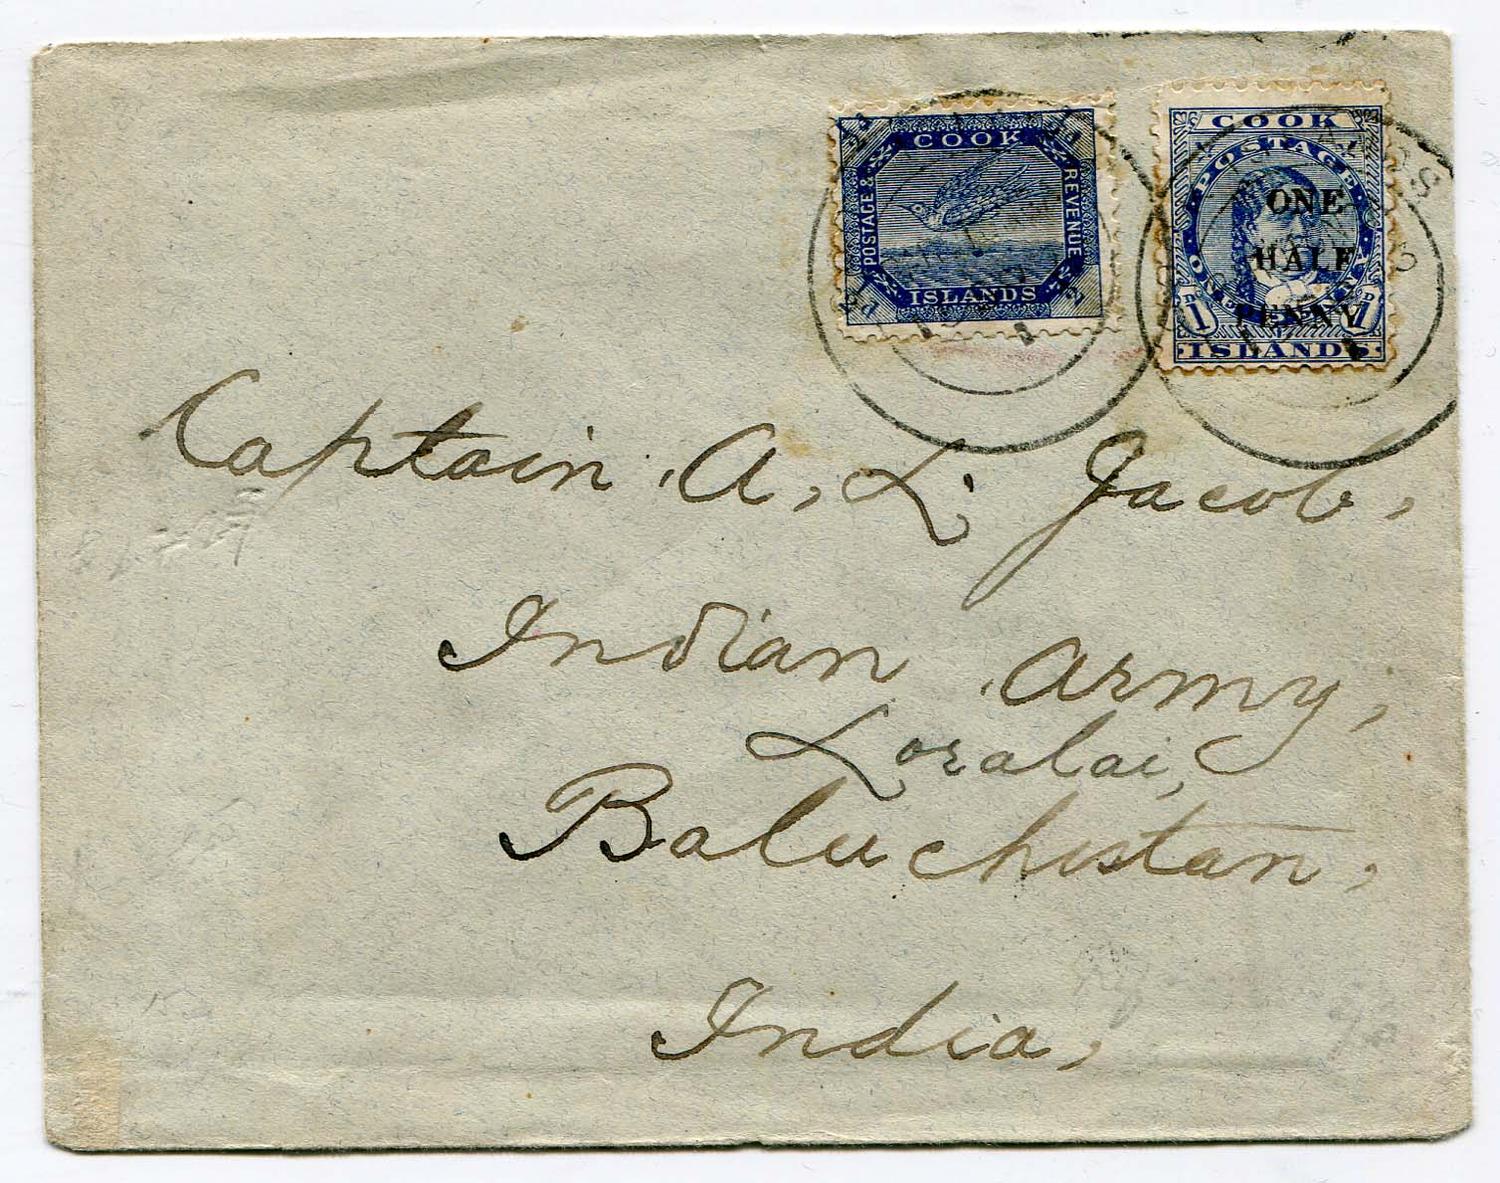 COOK
POSTAGE & REVENUE
ISLANDS
COOK
POSTAGE
ONE
HALF
PENNY
1D 1D
ISLANDS
Captain A, L. Jacob,
Indian Army,
Loralai,
Baluchistan,
India,